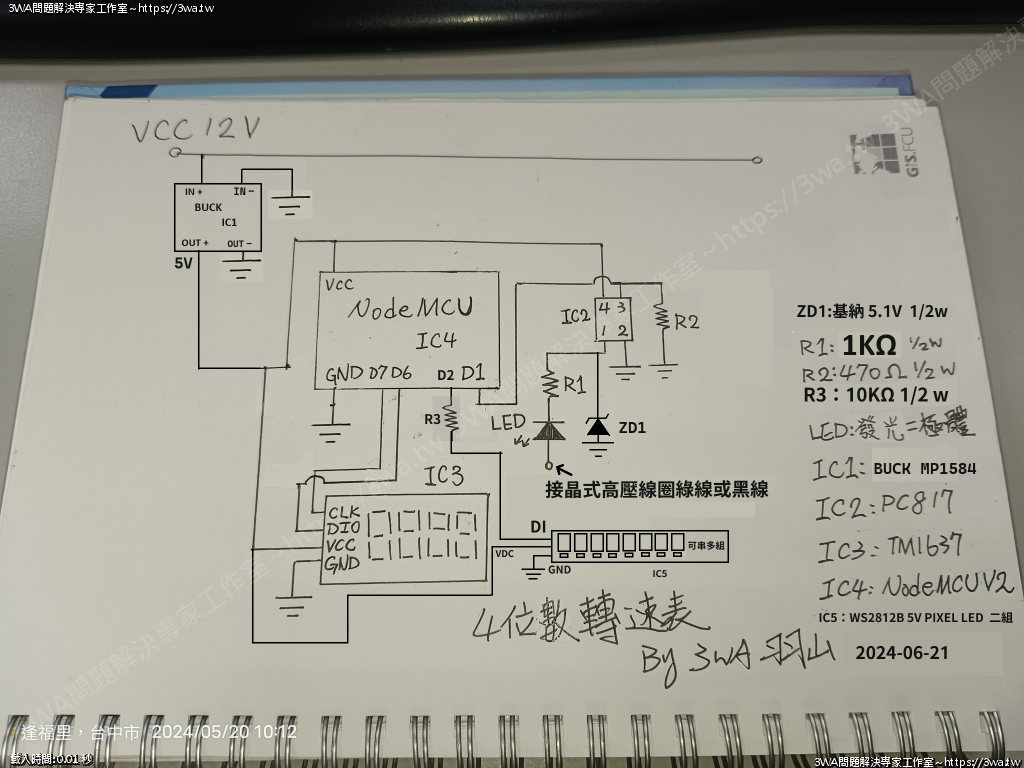 3WA問題解決專家工作室~https://3wa.tw
VCC 12V
GIS.FCU
IN + IN -
BUCK
IC1
OUT + OUT -
5V
VCC
NodeMCU
IC4
GND D7 D6 D2 D1
IC2
4 3
1 2
R2
R1
R3
LED
ZD1
接晶式高壓線圈綠線或黑線
IC3
CLK
DIO
VCC
GND
DI
VDC
GND
可串多組
IC5
ZD1:基納 5.1V 1/2w
R1: 1KΩ 1/2W
R2:470Ω 1/2 W
R3：10KΩ 1/2 w
LED:發光二極體
IC1: BUCK MP1584
IC2:PC817
IC3:TM1637
IC4: NodeMCU V2
IC5：WS2812B 5V PIXEL LED 二組
4位數轉速表
By 3WA 羽山
2024-06-21
逢福里，台中市 2024/05/20 10:12
載入時間:0.01 秒
3WA問題解決專家工作室~https://3wa.tw
3WA問題解決專家工作室~https://3wa.tw